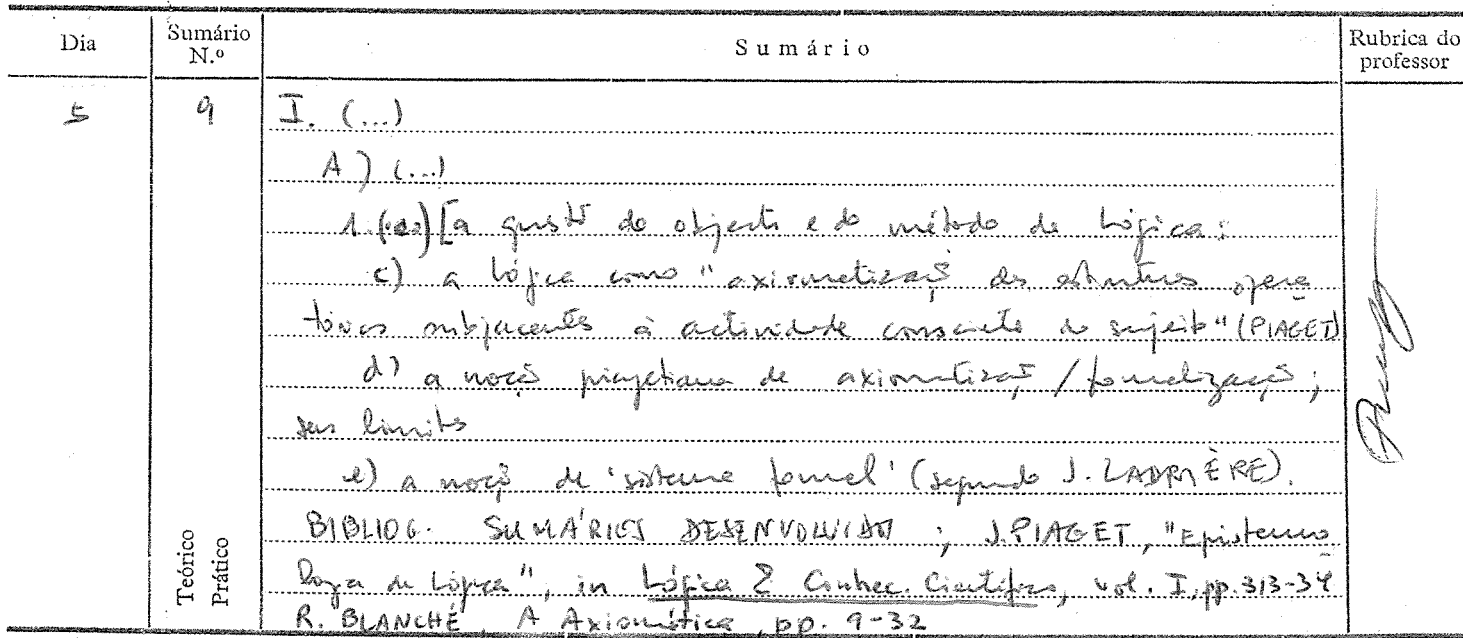 Dia
Sumário
N.º
Sumário
Rubrica do
professor
5
9
I. (...)
A) (...)
1. (...) [a questã do objecto e do método da Lógica:
c) a lógica como "axiomatizaçã das estruturas opera
tórias subjacentes à actividade consciente do sujeito" (PIAGET)
d) a noçã piagetiana de axiomatizaçã / formalizaçã;
seus limites
e) a noçã de 'sistema formal' (segundo J. LADRIÈRE).
BIBLIOG. SUMÁRIOS DESENVOLVIDOS; J. PIAGET, "Epistemo
logia da Lógica", in Lógica e Conhec. Científico, vol. I, pp. 313-34
R. BLANCHÉ, A Axiomática, pp. 9-32
Teórico
Prático